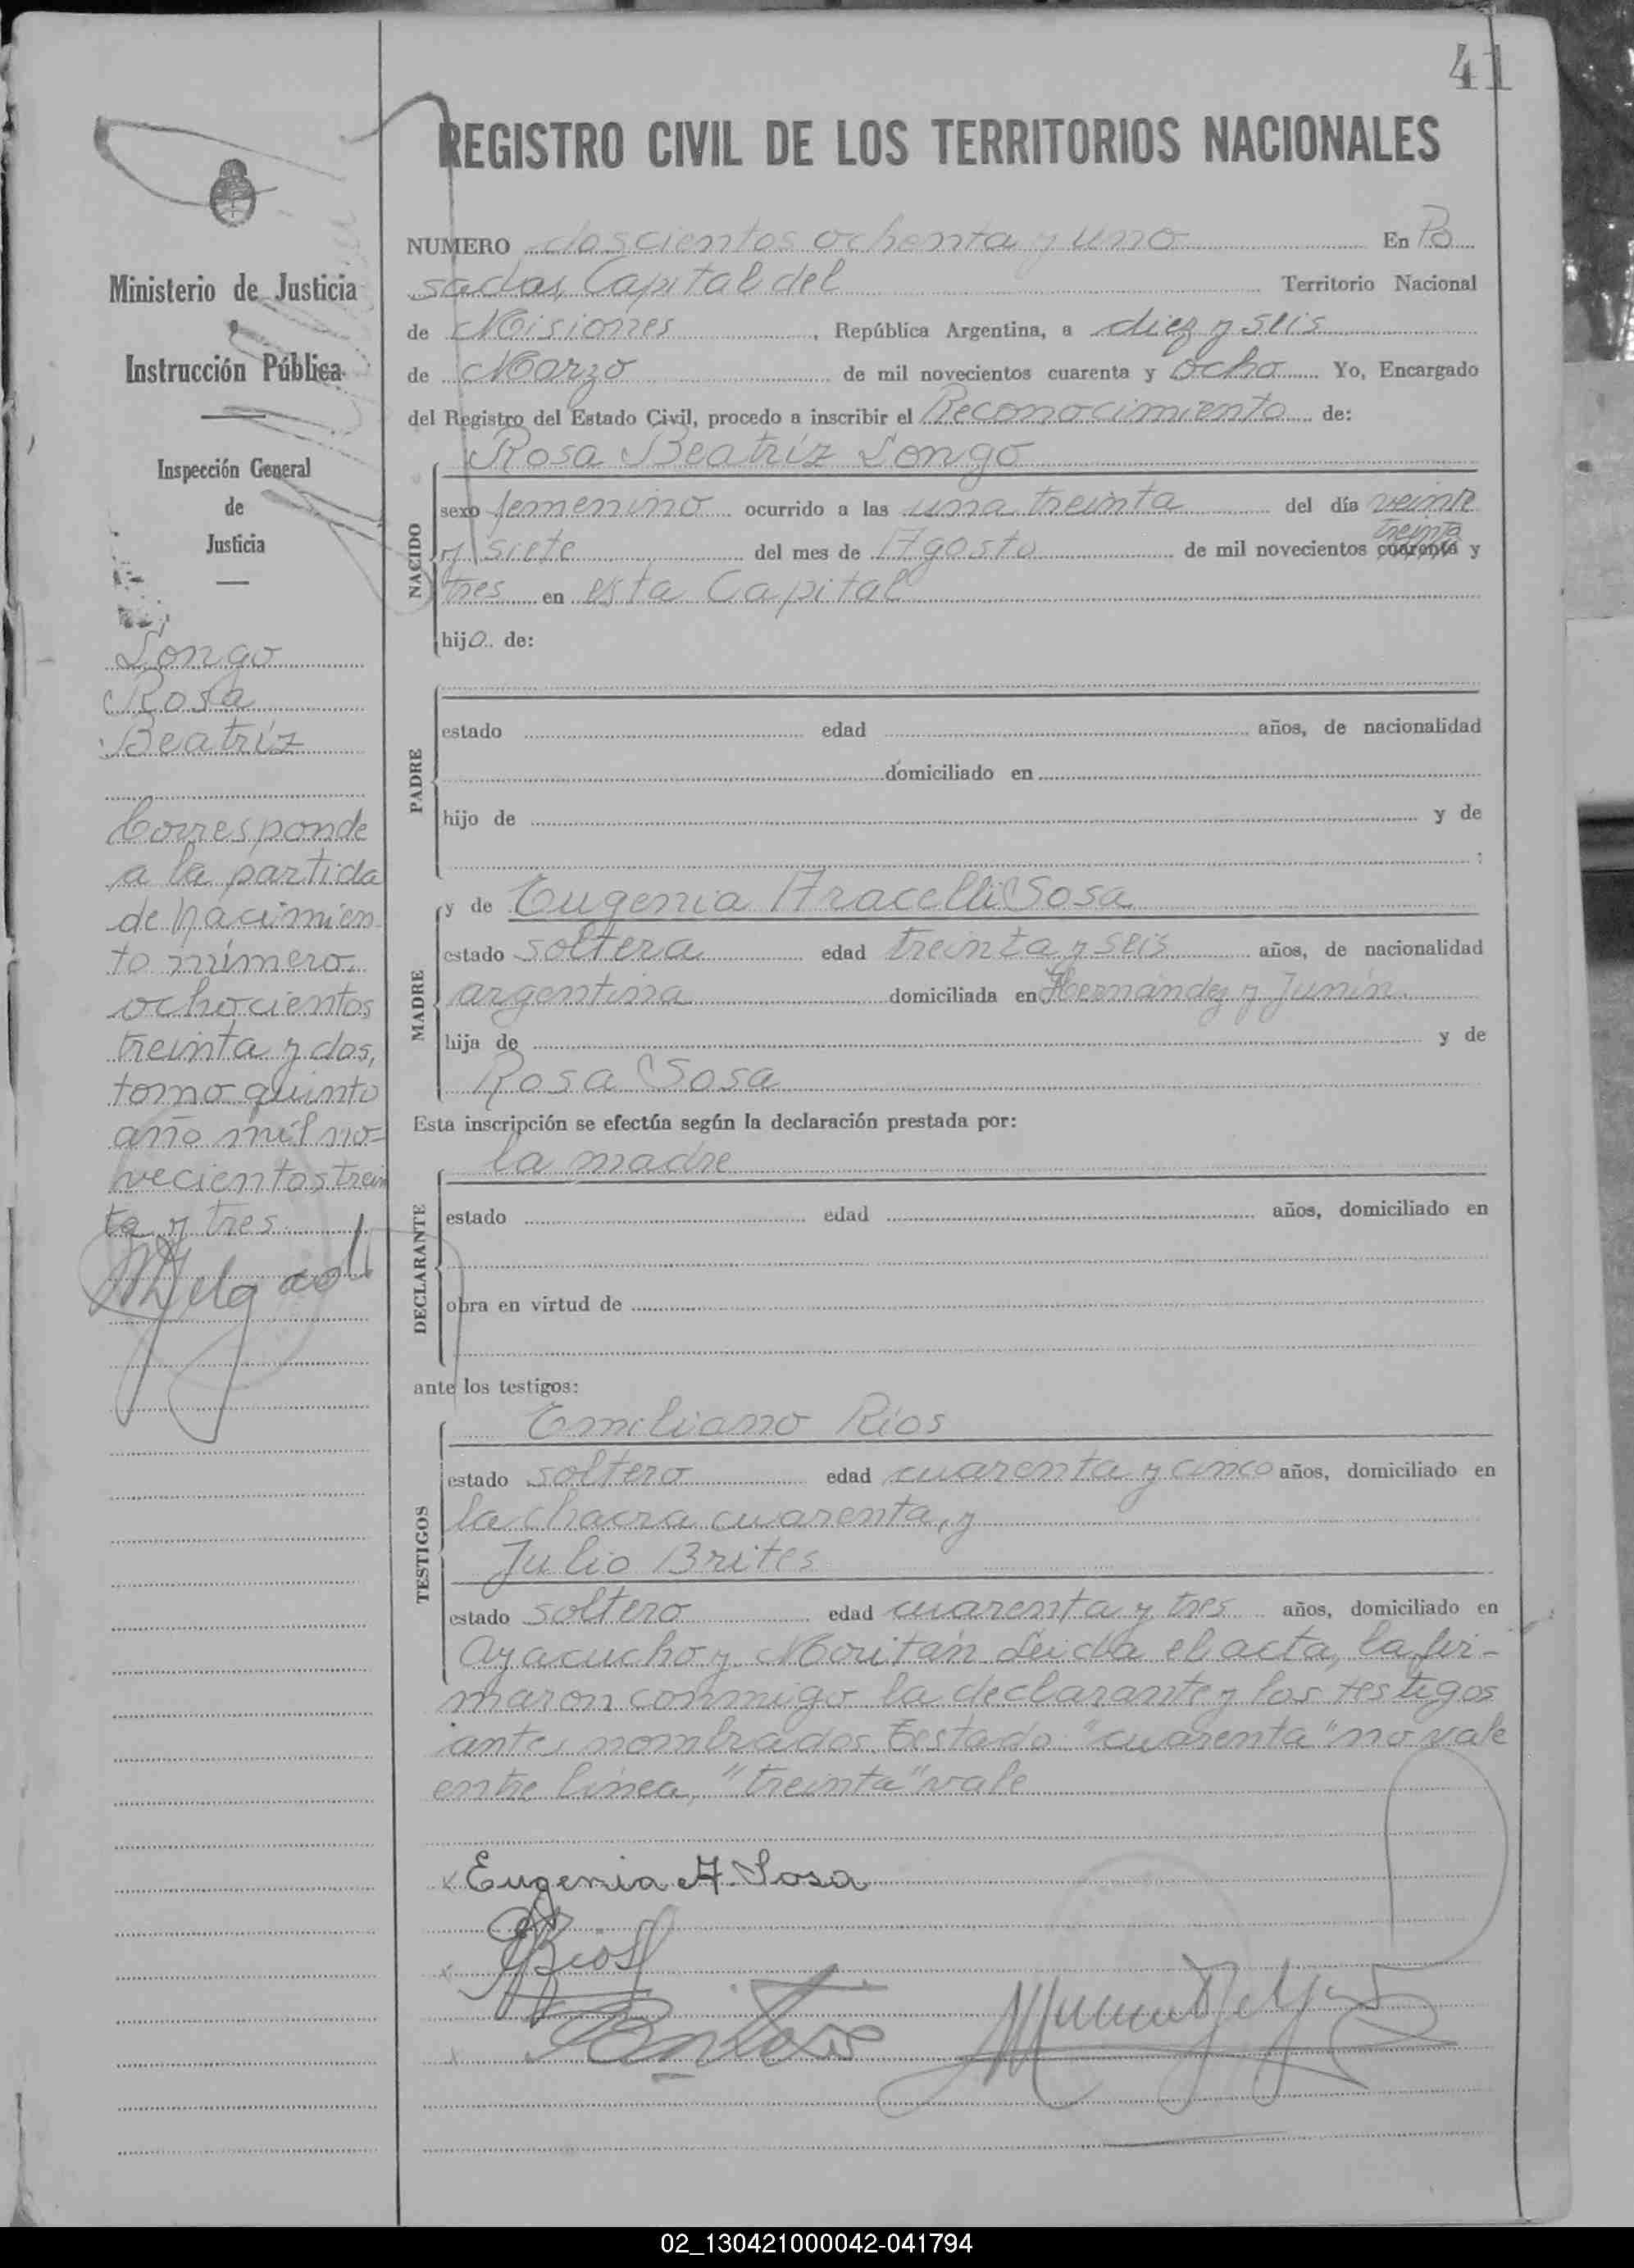 41
REGISTRO CIVIL DE LOS TERRITORIOS NACIONALES
Ministerio de Justicia
Instrucción Pública
Inspección General
de
Justicia
Longo
Rosa
Beatríz
Corresponde
a la partida
de nacimien
to número
ochocientos
treinta y dos,
tomo quinto
año mil no=
vecientos trein
ta y tres
NUMERO doscientos ochenta y uno En Po
sadas, Capital del Territorio Nacional
de Misiones, República Argentina, a diez y seis
de Marzo de mil novecientos cuarenta y ocho Yo, Encargado
del Registro del Estado Civil, procedo a inscribir el Reconocimiento de:
Rosa Beatríz Longo
NACIDO
sexo femenino ocurrido a las una treinta del día veinte
treinta
y siete del mes de Agosto de mil novecientos cuarenta y
tres en esta Capital
hijo de:
PADRE
estado edad años, de nacionalidad
domiciliado en
hijo de y de
;
MADRE
y de Eugenia Aracelli Sosa
estado soltera edad treinta y seis años, de nacionalidad
argentina domiciliada en Hernández y Junín
hija de y de
Rosa Sosa
Esta inscripción se efectúa según la declaración prestada por:
la madre
DECLARANTE
estado edad años, domiciliado en
obra en virtud de
ante los testigos:
TESTIGOS
Emiliano Ríos
estado soltero edad cuarenta y cinco años, domiciliado en
la chacra cuarenta, y
Julio Brites
estado soltero edad cuarenta y tres años, domiciliado en
Ayacucho y Moritán Leída el acta, la fir-
maron conmigo la declarante y los testigos
antes nombrados. Testado "cuarenta" no vale
entre línea, "treinta" vale
Eugenia A. Sosa
02_130421000042-041794